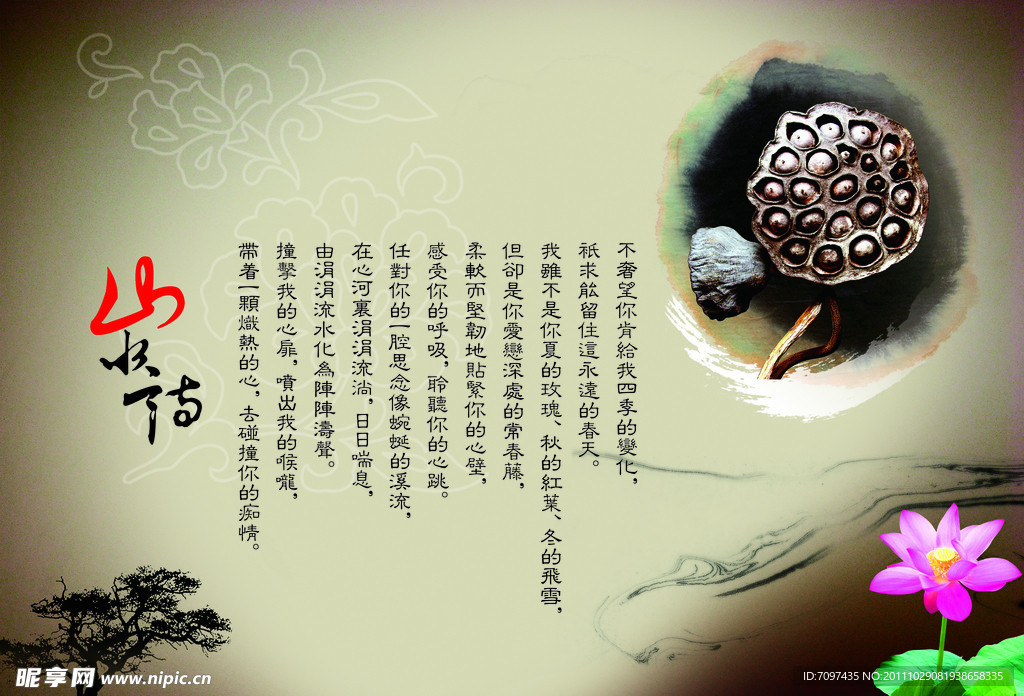 不奢望你肯給我四季的變化，
祇求能留住這永遠的春天。
我雖不是你夏的玫瑰、秋的紅葉、冬的飛雪，
但卻是你愛戀深處的常春藤，
柔軟而堅韌地貼緊你的心壁，
感受你的呼吸，聆聽你的心跳。
任對你的一腔思念像蜿蜒的溪流，
在心河裏涓涓流淌，日日喘息，
由涓涓流水化為陣陣濤聲。
撞擊我的心扉，噴出我的喉嚨，
帶着一顆熾熱的心，去碰撞你的痴情。
山水詩
昵享网 www.nipic.cn
ID:7097435 NO:20111029081938658335